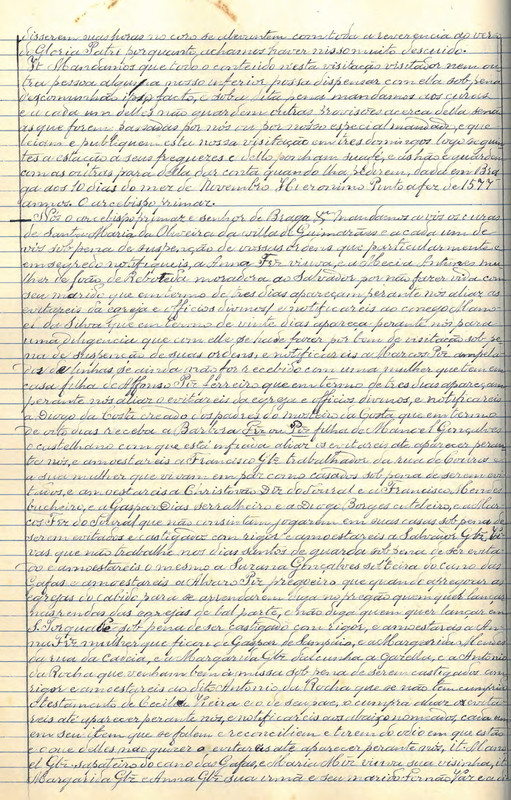 disserem suas horas no coro se alevantem com toda a reverencia ao verso
do Gloria Patri porquanto achamos haver nisso muito descuido.
It. Mandamos que todo o contendo nesta visitação visitador nem ou-
tra pessoa alguma a nosso inferior possa dispensar com ella sob pena
de excomunhão ipso facto, e sob a dita pena mandamos aos curas
e a cada um delles não guardem outras provisões acerca della senão
as que forem passadas por nós ou por nosso especial mandado, e que
leiam e publiquem esta nossa visitação em tres domingos logo seguin-
tes a estação a seus freguezes e dello ponham suas fés, e as hão e guardem
com as outras para della dar conta quando lha pedirem, dada em Bra-
ga aos 10 dias do mez de Novembro Hieronimo Pinto a fez de 1577
annos. O arcebispo primaz.
Nós o arcebispo primaz e senhor de Braga &. Mandamos a vós os curas
de Santa Maria da Oliveira da villa de Guimarães e a cada um de
vós sob pena de suspenção de vossas ordens que particularmente e
em segredo notifiqueis, a Anna Fiz viuva, e a Mecia Antunes mu-
lher de João de Reboreda moradora ao Salvador por não fazer vida com
seu marido que em termo de tres dias apareçam perante nós aliaz as
evitareis da egreja e officios divinos, e notificareis ao conego Mano-
el da Silva que em termo de vinte dias apareça perante nós para
uma diligencia que com elle se ha de fazer por bem de visitação sob pe-
na de suspenção de suas ordens, e notificareis a Marcos Piz
das se ainda não for recebido com uma mulher que tem em
casa filha de Affonso Piz ferreiro que em termo de tres dias apareçam
perante nós aliaz o evitareis da egreja e officios divinos, e notificareis
a Diogo da Costa creado dos padres do mosteiro da Costa, que em termo
de oito dias receba a Barbara filha de Manoel Gonçalves
o castelhano com que está infamado aliaz os evitareis até aparecer peran-
te nós, e amoestareis a Francisco Glz trabalhador da rua de Couros e
a sua mulher que vivam em paz como casados sob pena de serem evi-
tados, e amoestareis a Christovam Diz do Toural e a Francisco Mendes
bucheiro, e a Gaspar Dias serralheiro e a Diogo Borges cutileiro, e a Mar-
cos Fiz do Toural que não consintam jogarem em suas casas sob pena de
serem evitados e castigados com rigor e amoestareis a Salvador Glz
que não trabalhe nos dias santos de guarda sob pena de ser evita-
do e amoestareis o mesmo a Suzana Gonçalves solteira do cano das
Gafas e amoestareis a Alvaro Piz pregoeiro que quando apregoar as
egrejas do cabido para se arrendarem diga no pregão quem quer lançar
nas rendas das egrejas de tal parte, e não diga quem quer lançar em
S. Torquade sob pena de ser castigado com rigor, e amoestareis a An-
na Fiz mulher que ficou de Gaspar de Sampaio, e a Margarida Mendes
da rua da Caldeiroa, e a Margarida Glz da cunha a Gazella, e a Antonio
da Rocha que venham bem á missa sob pena de serem castigados com
rigor e amoestareis ao dito Antonio da Rocha que se não tem cumprido
o testamento de Cecilia Vieira e o cumpra aliaz o evita-
reis até aparecer perante nós, e notificareis aos abaixo nomeados, cada um
em seu item que se falem e reconciliem e tirem do odio em que estão
e o que delles não quizer o evitareis até aparecer perante nós, it: Mano-
el Glz sapateiro do cano das Gafas, e Maria Miz viuva sua visinha, it:
Margarida Glz e Anna Glz sua irmã e seu marido Fernão Vaz e a